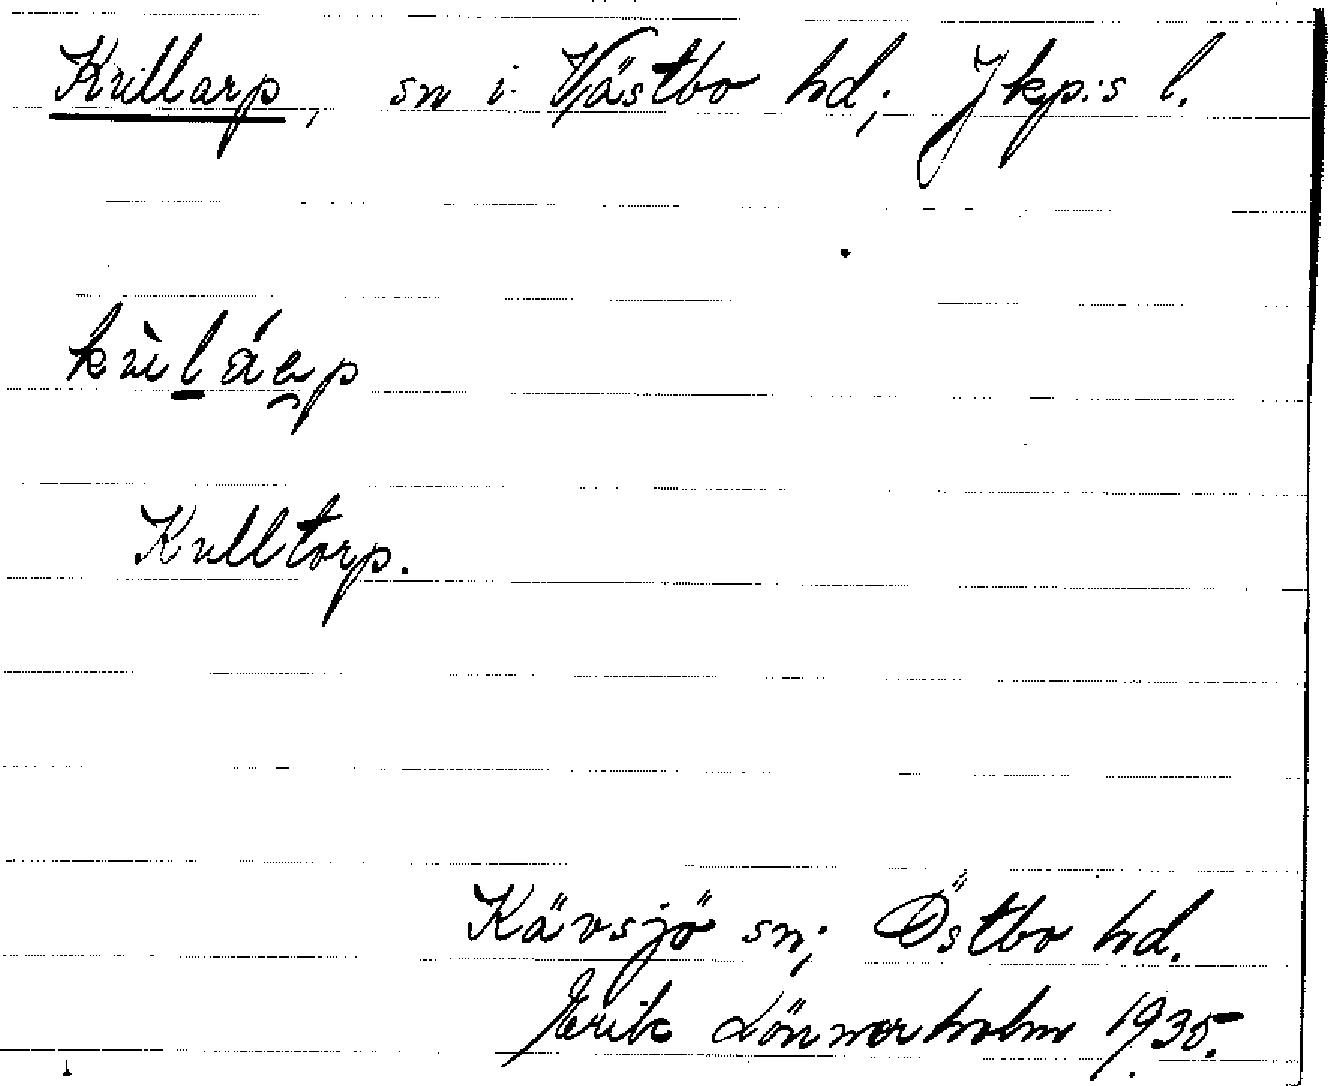 Kullarp, sn i Västbo hd; Jkp:s l.
Kulltorp.
Kävsjö sn; Östbo hd.
Erik Lönnerholm 1935.